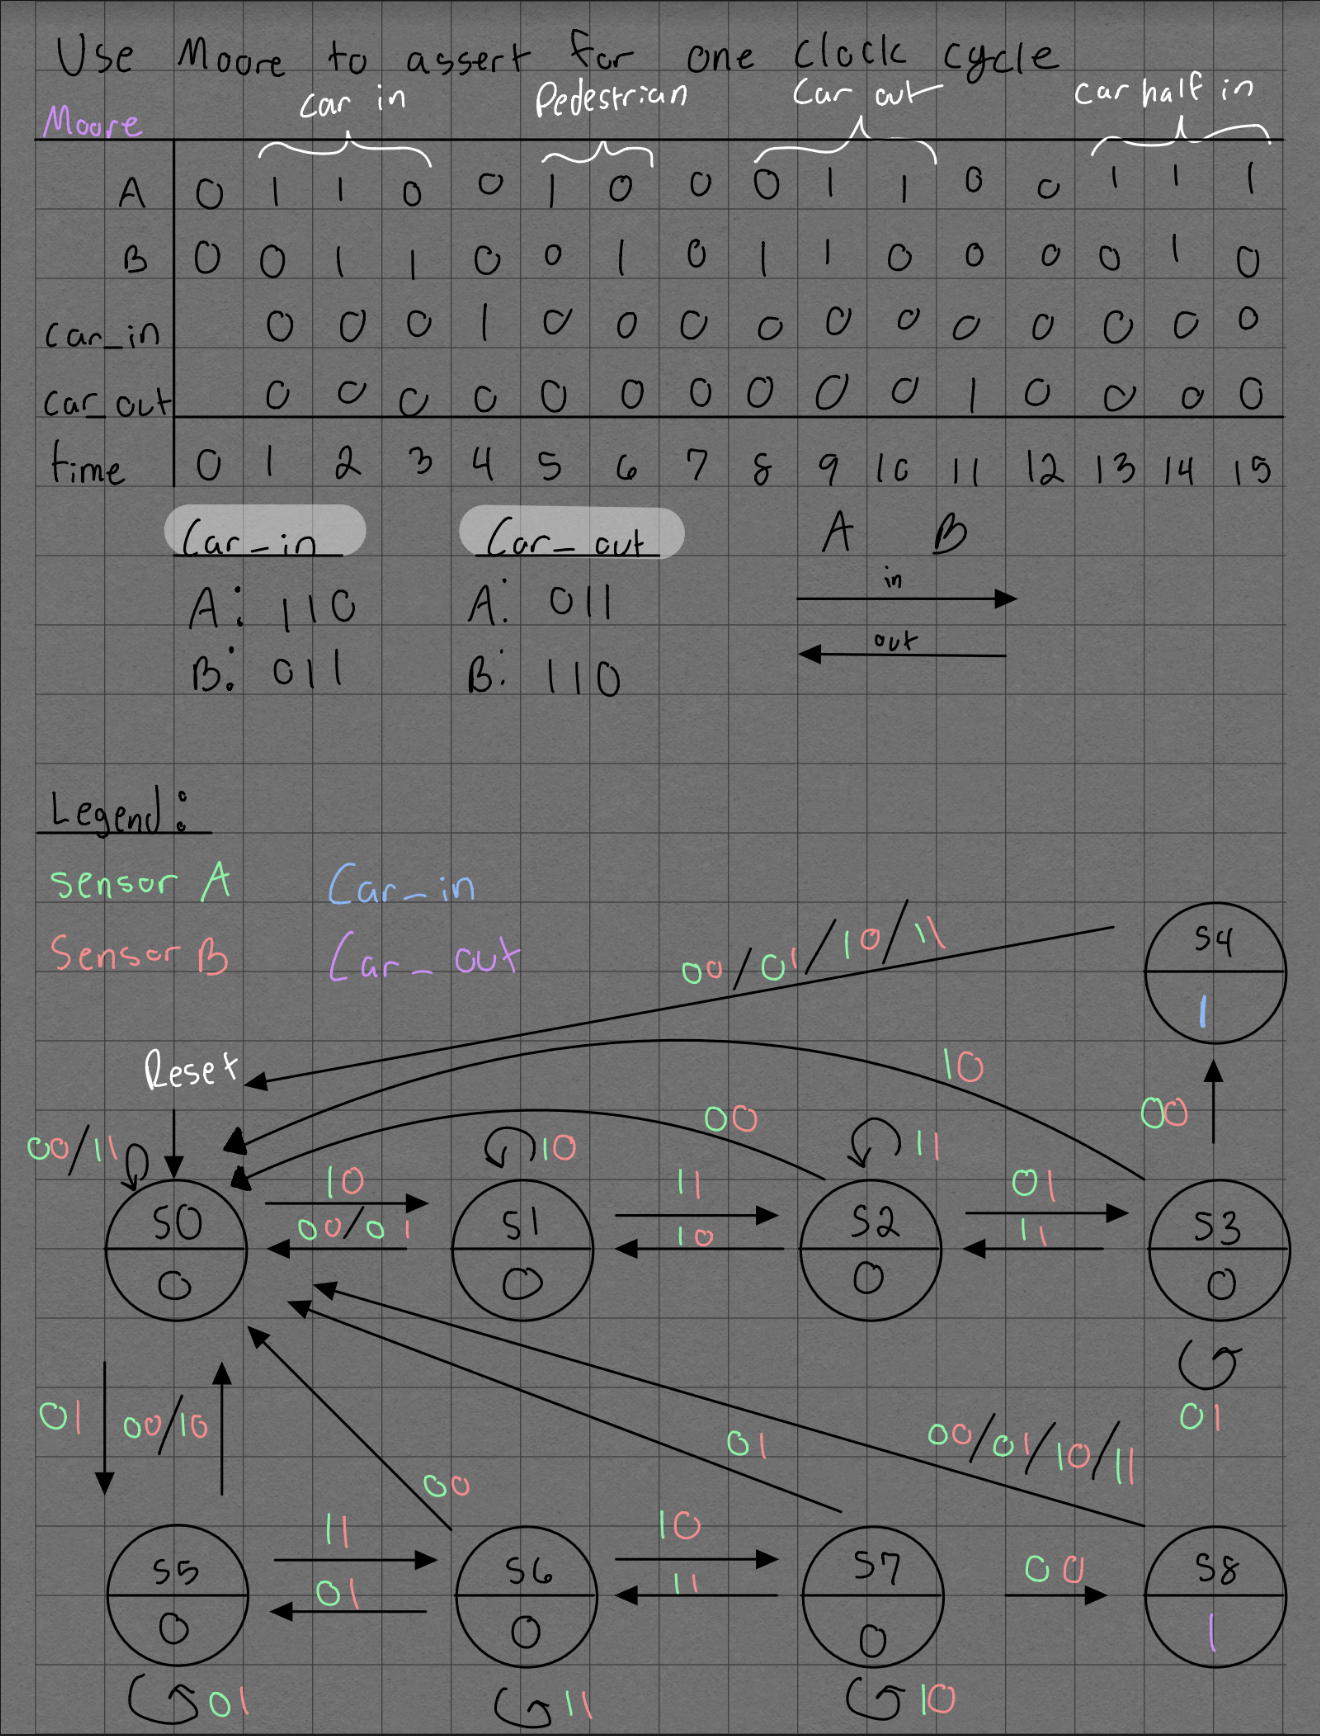 Use Moore to assert for one clock cycle
car in Pedestrian Car out car half in
Moore
A 0 1 1 0 0 1 0 0 0 1 1 0 0 1 1 1
B 0 0 1 1 0 0 1 0 1 1 0 0 0 0 1 0
car_in 0 0 0 1 0 0 0 0 0 0 0 0 0 0 0
car_out 0 0 0 0 0 0 0 0 0 0 1 0 0 0 0
time 0 1 2 3 4 5 6 7 8 9 10 11 12 13 14 15
Car_in Car_out A B
in
A: 110 A: 011
out
B: 011 B: 110
Legend:
sensor A Car_in
Sensor B Car_out
00/01/10/11
S4
1
Reset
10
00
00
00/11
10
11
10
11
01
00/01
10
11
S0
0
S1
0
S2
0
S3
0
01
01
00/10
00
01
00/01/10/11
11
01
10
11
00
S5
0
S6
0
S7
0
S8
1
01
11
10